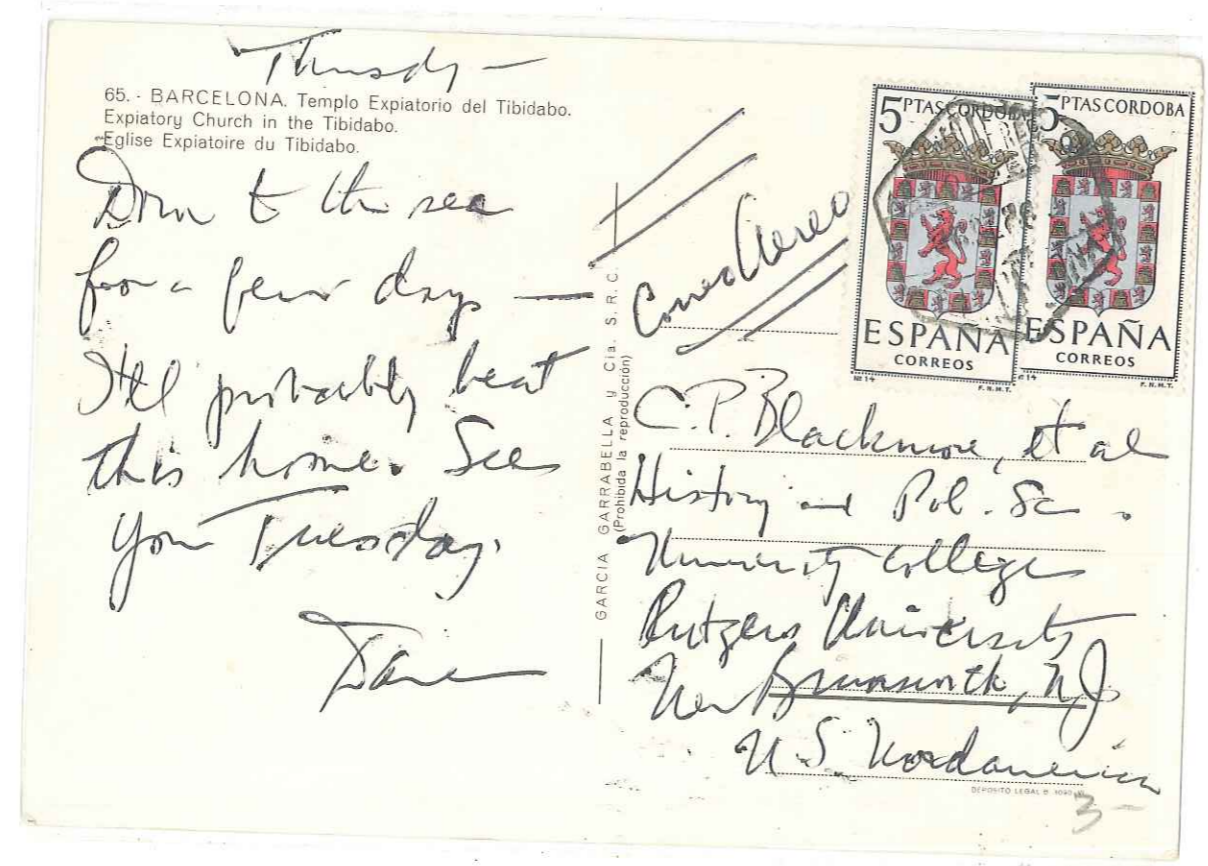 Thursday —
65. - BARCELONA. Templo Expiatorio del Tibidabo.
Expiatory Church in the Tibidabo.
Eglise Expiatoire du Tibidabo.
Down to the sea
for a few days —
I'll probably beat
this home. See
you Tuesday.
Dave
GARCIA GARRABELLA y Cia. S. R. C.
(Prohibida la reproducción)
Correo Aereo
5 PTAS CORDOBA
ESPAÑA
CORREOS
Nº 14
F. N. M. T.
5 PTAS CORDOBA
ESPAÑA
CORREOS
Nº 14
F. N. M. T.
C. P. Blackmore, et al
History and Pol. Sc.
University College
Rutgers University
New Brunswick, NJ
U.S. Nordamerica
DEPOSITO LEGAL B.
3 —